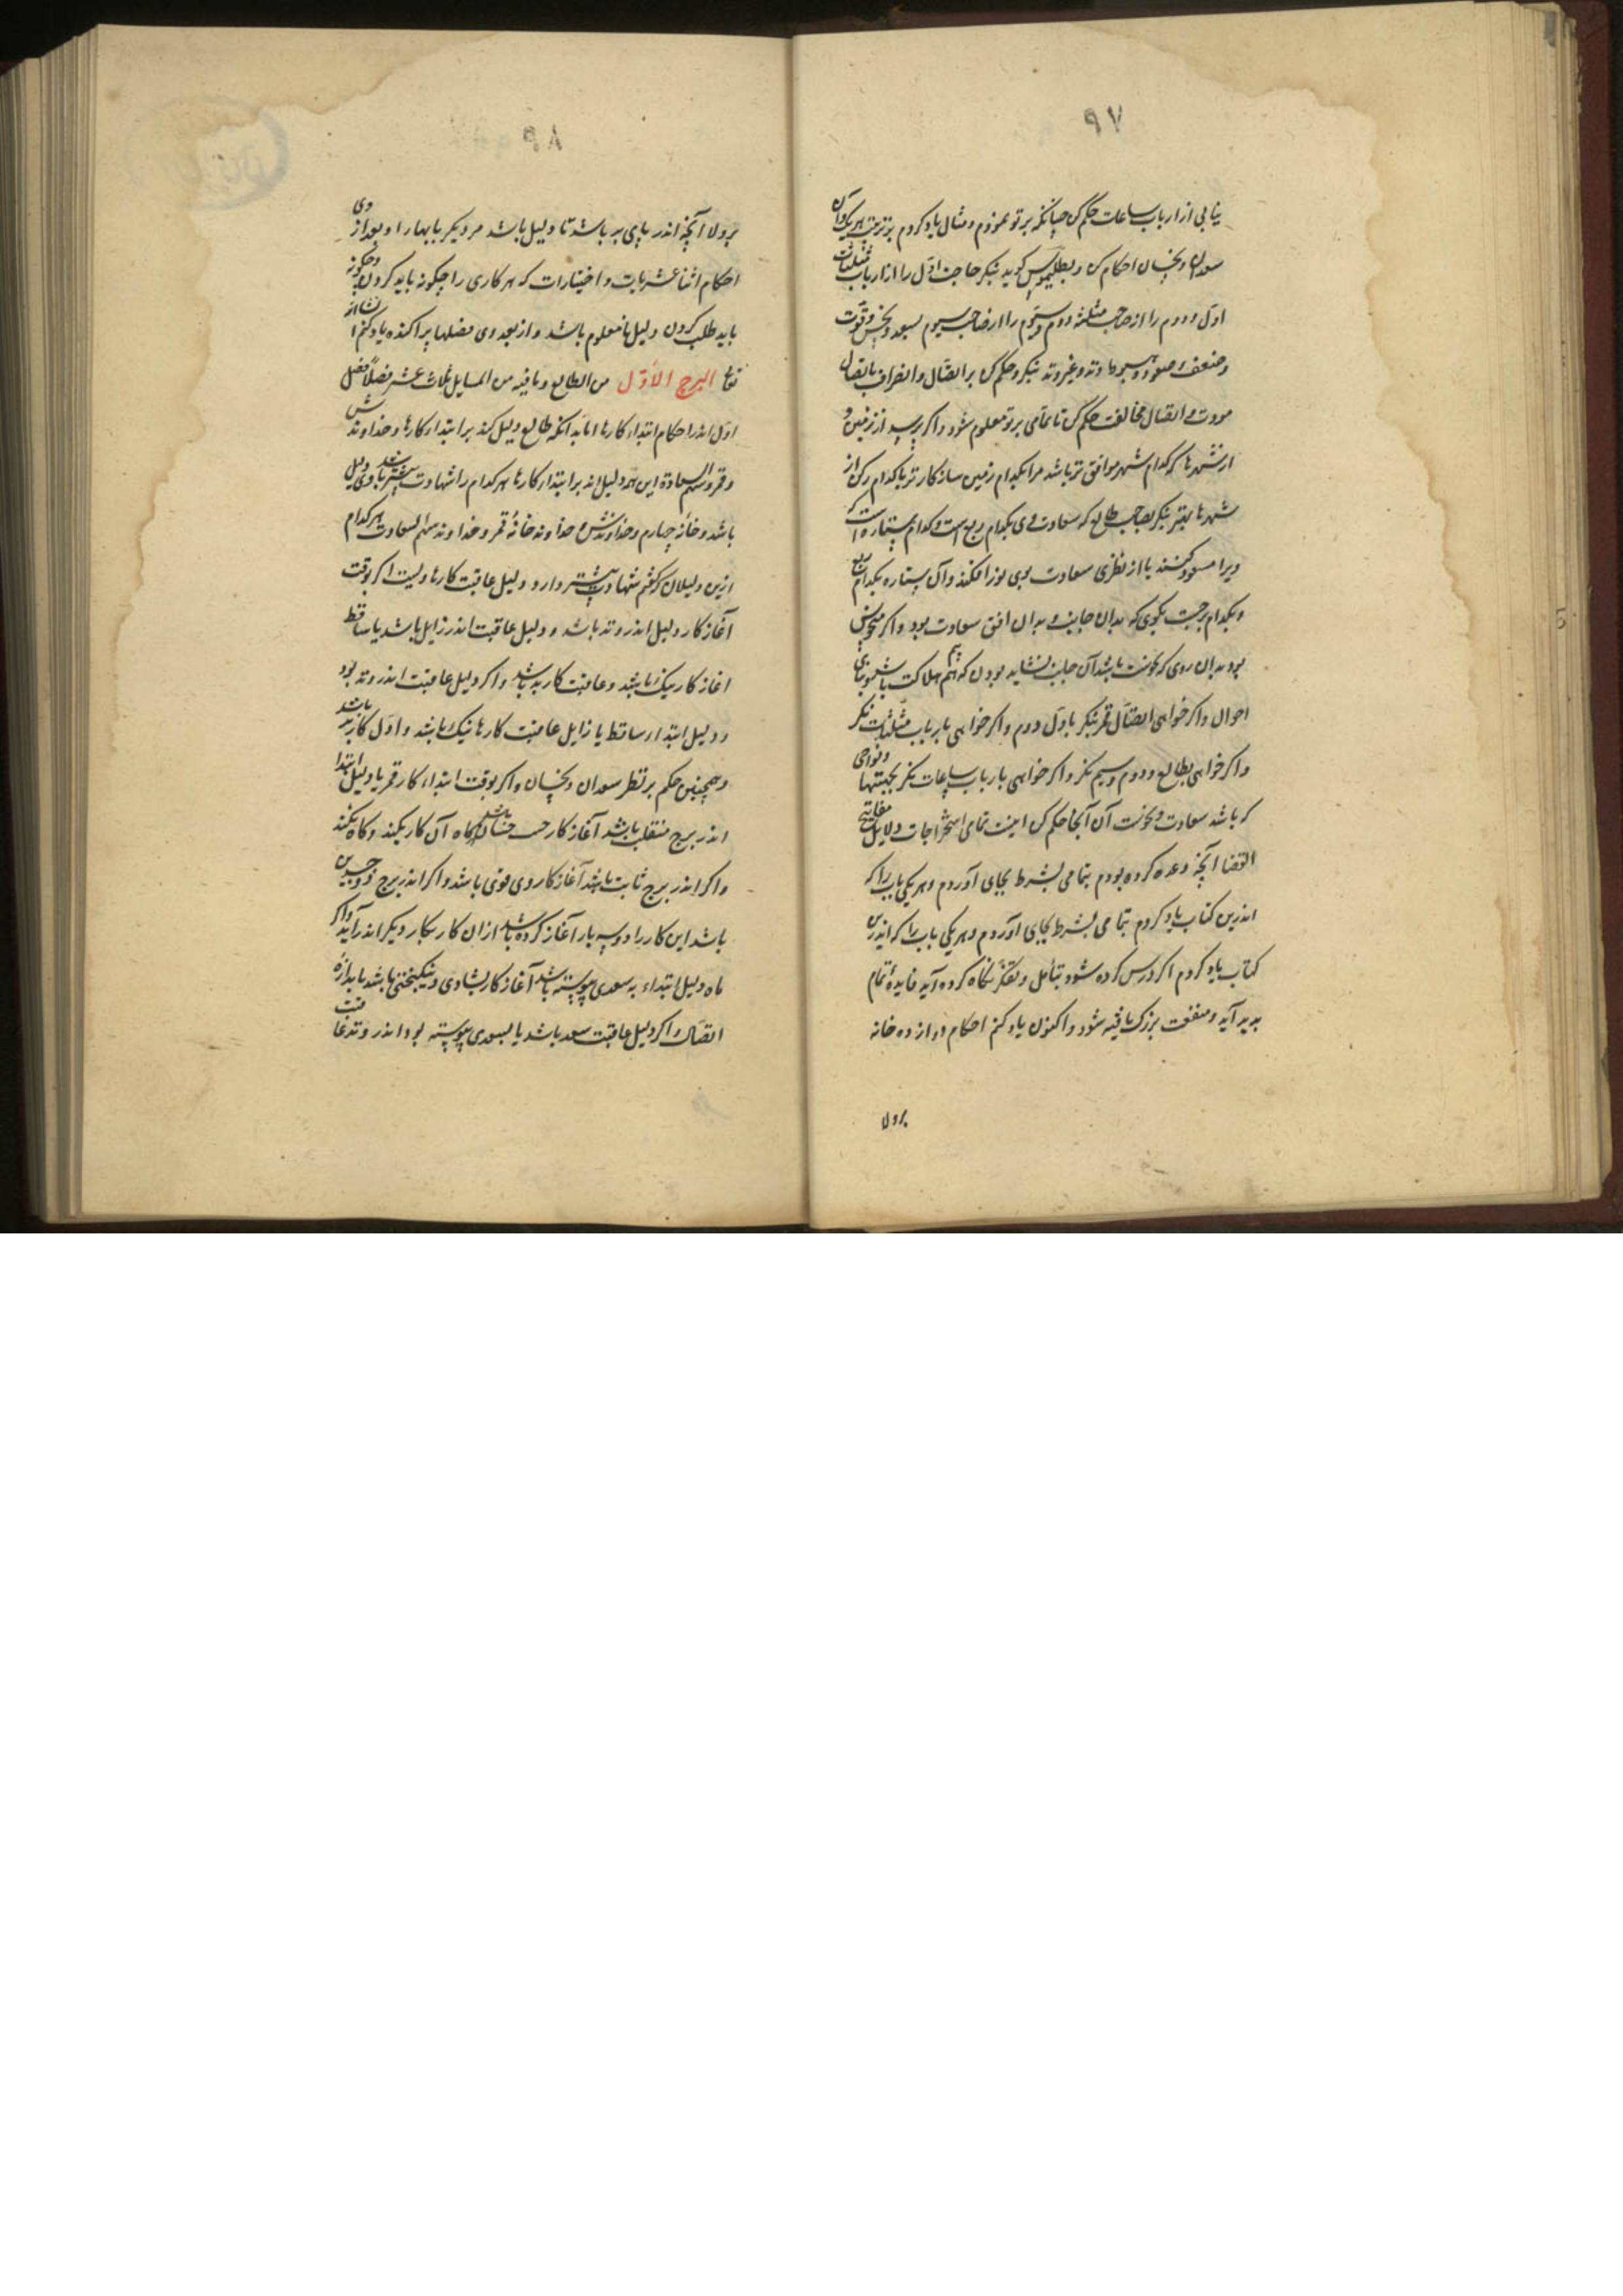 ۹۷
بنابی از ارباب ساعات حکم کن چنانکه بر تو نمودم و مثال یاد کردم بر تربیت هر یک و آن
سعدان و نحسان احکام کن و بطلیموس گوید بنگر حاجت اول را از ارباب مثلثات
اول و دوم را از صاحب مثلثه دوم و سیوم را از صاحب سیوم بسعد و نحس و قوت
و ضعف و صعود و هبوط و وتد و غیر وتد بنگر و حکم کن بر اتصال و انصراف با تصال
مودت و اتصال مخالفت حکم کن تا بتمامی بر تو معلوم شود و اگر پرسد از زمین و
از شهرها که کدام شهر موافق تر باشد مرا بکدام زمین سازکارتر یا کدام رکن از
شهرها بهتر بنگر بصاحب طالع که سعادت وی بکدام ربع است و کدام ستاره است که
ویرا مسعود کنند یا از نظری سعادت بوی نور افکند و آن ستاره بکدام ربع
و بکدام برجست بگوی که بدان جانب و بدان افق سعادت بود و اگر منحوس
بود بدان روی که نحوست باشد آن جانب نشاید بودن که بیم هلاکت باشد
احوال و اگر خواهی اتصال قمر بنگر باول و دوم و اگر خواهی بارباب مثلثات نگر
و اگر خواهی بطالع و دوم و سیم نگر و اگر خواهی بارباب ساعات نگر بجهتها و نواحی
که باشد سعادت و نحوست آن آنجا حکم کن اینست تمامی استخراجات دلایل مفاتیح
القضا آنچه وعده کرده بودم بتمامی بشرط بجای آوردم و هر یکی باب را که
اندرین کتاب یاد کردم بتمامی بشرط بجای آوردم و هر یکی باب را که اندرین
کتاب یاد کردم اگر درس کرده شود بتأمل و تفکر نگاه کرده آید فایدهٔ تمام
پدید آید و منفعت بزرگ یافته شود و اکنون یاد کنم احکام دوازده خانه
برولا
۹۸
برولا آنچه اندر بابی بد باشد تا دلیل باشد مر دیگر بابها را و بعد از وی
احکام اثنا عشریات و اختیارات که هر کاری را چگونه باید کردن و چگونه
باید طلب کردن دلیل تا معلوم باشد و از بعد وی فصلها پراکنده یاد کنم انشا الله
تعا البرج الاول من الطالع و ما فیه من المسایل ثلاث عشر فصلاً فصل
اول اندر احکام ابتداء کارها اما بدانکه طالع دلیل کند بر ابتداء کارها و خداوندش
و قمر و سهم السعادة این همه دلیل اند بر ابتداء کارها هر کدام را شهادت بیشتر باشد وی دلیل
باشد و خانهٔ چهارم و خداوندش و خداوند خانهٔ قمر و خداوند سهم السعادت هر کدام
ازین دلیلان که گفتم شهادت بیشتر دارد دلیل عاقبت کارها ویست اگر بوقت
آغاز کار دلیل اندر وتد باشد و دلیل عاقبت اندر زایل باشد یا ساقط
آغاز کار نیک باشد و عاقبت کار بد باشد و اگر دلیل عاقبت اندر وتد بود
و دلیل ابتداء ساقط یا زایل عاقبت کارها نیک باشد و اول کار بد باشد
و همچنین حکم بر نظر سعدان و نحسان و اگر بوقت ابتداء کار قمر یا دلیل ابتدا
اندر برج منقلب باشد آغاز کار چنان باشد گاه آن کار بکند و گاه نکند
و اگر اندر برج ثابت باشد آغاز کار وی قوی باشد و اگر اندر برج ذو جسدین
باشد این کار را دو سه بار آغاز کرده باشد از آن کار بکار دیگر اندر آید و اگر
ماه دلیل ابتداء به سعدی پیوسته باشد آغاز کار بشادی و نیکبختی باشد باندازهٔ
اتصال و اگر دلیل عاقبت سعد باشد یا بسعدی پیوسته بود اندر وتد عاقبت